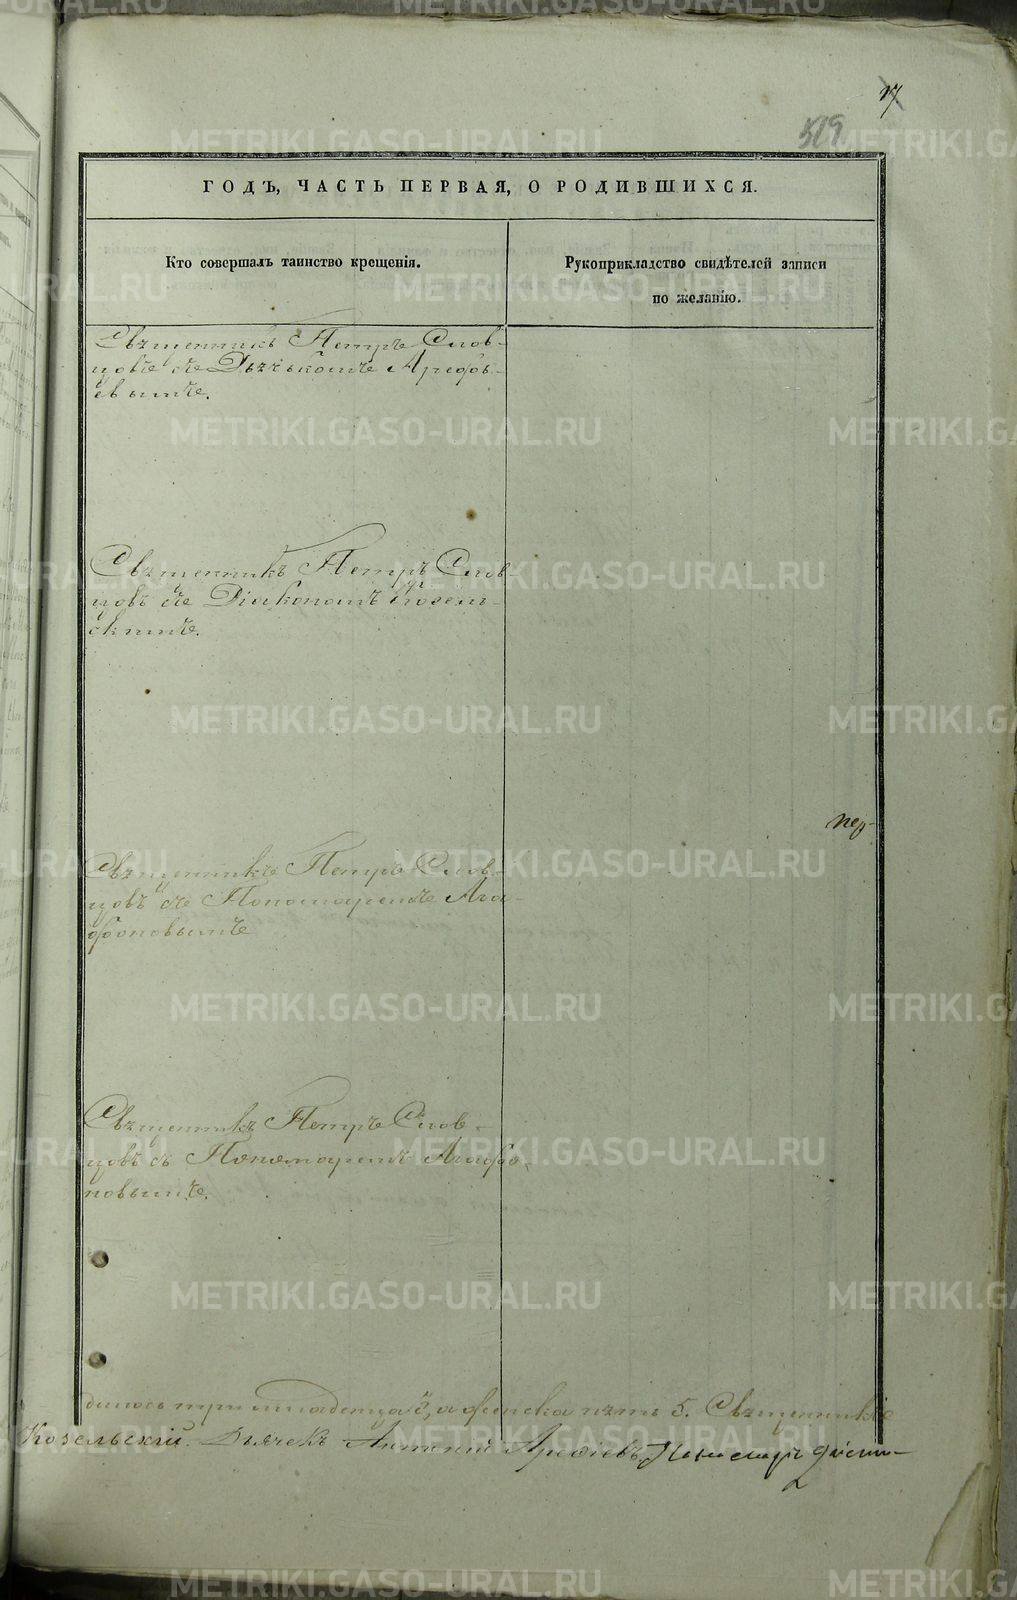 17
519
ГОДЪ, ЧАСТЬ ПЕРВАЯ, О РОДИВШИХСЯ.
Кто совершалъ таинство крещенія.
Рукоприкладство свидѣтелей записи
по желанію.
Священникъ Петръ Слов-
цовъ съ Дьячкомъ Арефь-
евымъ.
Священникъ Петръ Слов-
цовъ съ Діакономъ Козель-
скимъ.
Священникъ Петръ Слов-
цовъ съ Пономаремъ Ага-
фоновымъ
Священникъ Петръ Слов-
цовъ съ Пономаремъ Агафо-
новымъ.
пять 5. Священникъ
Козельскій. Дьячекъ Антоній Арефьевъ. Пономарь
METRIKI.GASO-URAL.RU